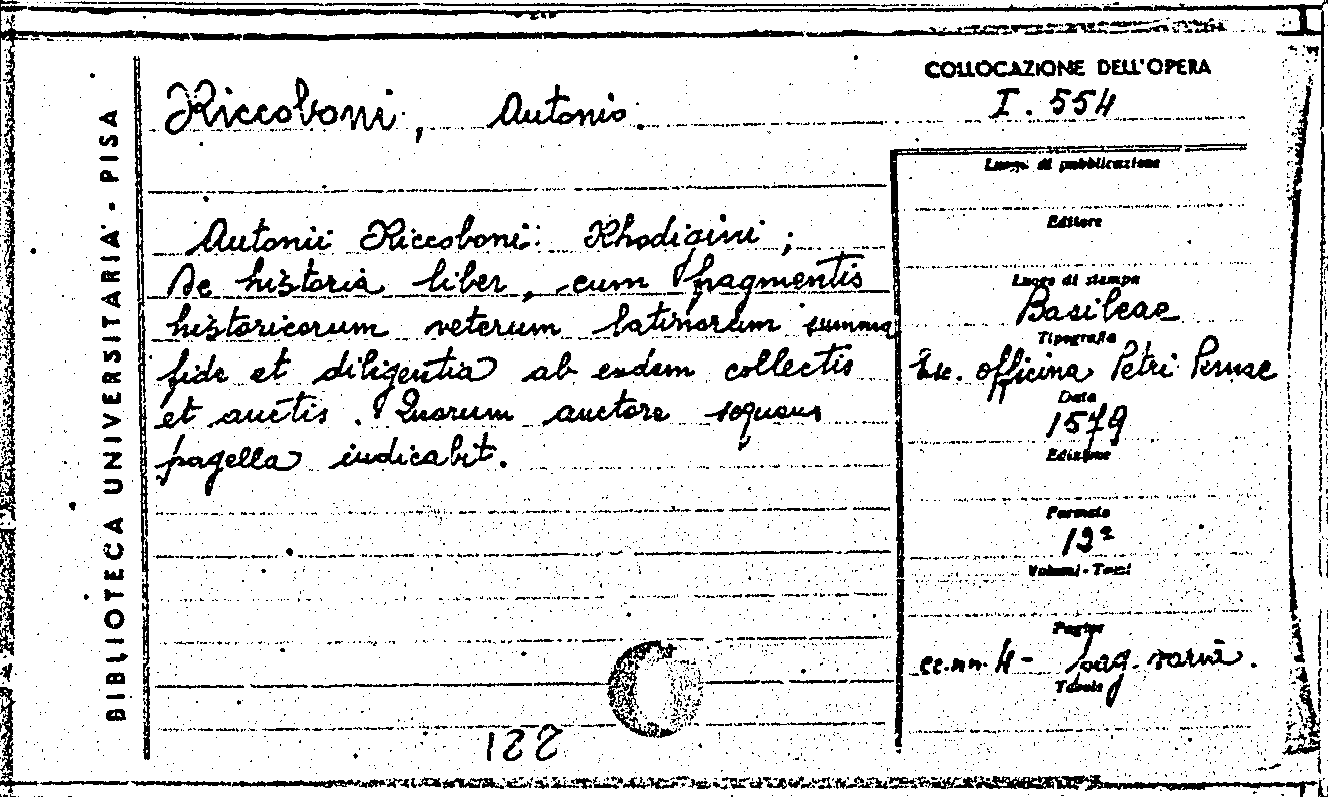 BIBLIOTECA UNIVERSITARIA - PISA
Riccoboni, Antonio.
Antonii Riccoboni Rhodigini;
De historia liber, cum fragmentis
historicorum veterum latinorum summa
fide et diligentia ab eodem collectis
et auctis. Quorum auctore sequens
pagella indicabit.
122
COLLOCAZIONE DELL'OPERA
I. 554
Luogo di pubblicazione
Editore
Luogo di stampa
Basileae
Tipografia
Ex. officina Petri Pernae
Data
1579
Edizione
Formato
12º
Volumi - Tomi
Pagine
cc.nn. 4 - pag. varia.
Tavole